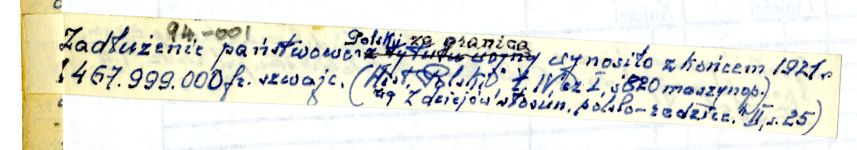 94.-001
Polski za granicą
Zadłużenie państwowe z tytułu wojny wynosiło z końcem 1921 r
1467.999.000 fr. szwajc. (Hist. Polski" t. IV cz I, s 820 maszynop.)
wg "Z dziejów stosun. polsko-radziec." II, s. 25)